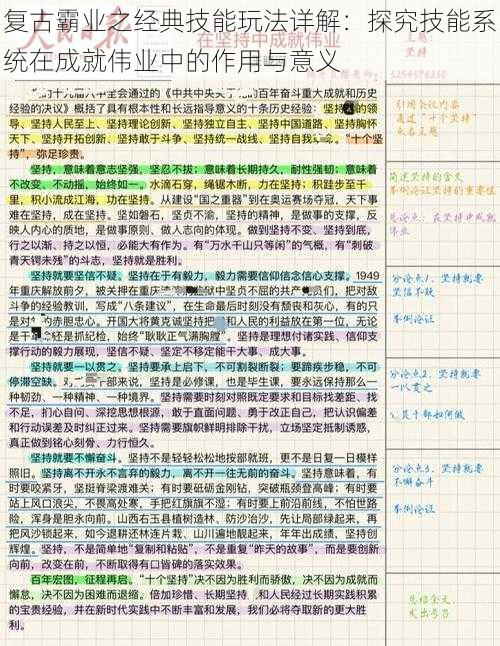 复古霸业之经典技能玩法详解：探究技能系
统在成就伟业中的作用与意义
在坚持中成就伟业
坚持
的十九届六中全会通过的《中共中央关于
的百年奋斗重大成就和历史
经验的决议》概括了具有根本性和长远指导意义的十条历史经验：坚持
的领
导、坚持人民至上、坚持理论创新、坚持独立自主、坚持中国道路、坚持胸怀
天下、坚持开拓创新、坚持敢于斗争、坚持统一战线、坚持自我
。“十个坚
持”，弥足珍贵。
坚持，意味着意志坚强，坚忍不拔；意味着长期持久，耐性强韧；意味着
不改变、不动摇，始终如一。水滴石穿，绳锯木断，力在坚持；积跬步至千
里，积小流成江海，功在坚持。从建设“国之重器”到在奥运赛场夺冠，天下事
难在坚持，成在坚持。坚如磐石，坚贞不渝，坚持的精神，是做事的支撑，反
映人内心的质地，是做事原则、做人志向的体现。做到坚持不变、坚持到底，
行之以渐、持之以恒，必能大有作为。有“万水千山只等闲”的气概，有“刺破
青天锷未残”的斗志，坚持就是胜利。
坚持就要坚信不疑。坚持在于有毅力，毅力需要信仰信念信心支撑。1949
年重庆解放前夕，被关押在重庆
监狱中坚贞不屈的共产
员们，把对敌
斗争的经验教训，写成“八条建议”，在生命最后时刻没有颓丧和灰心，有的只
是对
的赤胆忠心。开国大将黄克诚坚持把
和人民的利益放在第一位，无论
是干
还是抓纪检，始终“耿耿正气满胸膛”。坚持是理想付诸实践、信仰支
撑行动的毅力展现，坚信不疑、坚定不移定能干大事、成大事。
坚持就要一以贯之。坚持要承上启下，不可割裂断裂；要蹄疾步稳，不可
停滞空缺。
干部来说，坚持是必修课，也是毕生课，要永远保持那么一
种韧劲、一种精神、一种境界。坚持需要时刻对照既定要求和目标找差距、找
不足，扪心自问、深挖思想根源，敢于直面问题、勇于改正自己，把认识偏差
和行动误差及时纠正过来。坚持需要旗帜鲜明排除干扰，立场坚定抵制诱惑，
真正做到铭心刻骨、力行恒久。
坚持就要不懈奋斗。坚持不能轻轻松松地按部就班，更不是日复一日模样
照旧。坚持离不开永不言弃的毅力，离不开一往无前的奋斗。坚持意味着，有
时要咬紧牙，坚挺脊梁渡难关；有时要砥砺金刚钻，突破瓶颈登高峰；有时要
站上风口浪尖，不畏高处寒，手把红旗旗不湿；有时要上前沿前线，不怕世路
险，浑身是胆永向前。山西右玉县植树造林、防沙治沙，先让局部绿起来，再
把风沙锁起来，如今退耕还林连片栽，山川遍地靓起来，成年年出成绩、坚持创
辉煌。坚持，不是简单地“复制和粘贴”，不是重复“昨天的故事”，而是要创新
向前，改变在前，不断取得有口皆碑的落实效果。
百年宏图，征程再启。“十个坚持”决不因为胜利而骄傲，决不因为成就而
懈怠，决不因为困难而退缩。倍加珍惜、长期坚持
和人民经过长期实践积累
的宝贵经验，并在新时代实践中不断丰富和发展，我们必将夺取新的更大胜
利。
引用会议内容
通过“十个坚持”
点名主题
简述坚持的含义
举例论证坚持的重要性
总论点：在坚持中成就
伟业
分论点1．坚持就要
坚信不疑
举例论证
分论点2．坚持就要
一以贯之
党员干部如何做
分论点3．坚持就要
不懈奋斗
举例论证
总结全文，
发出号召